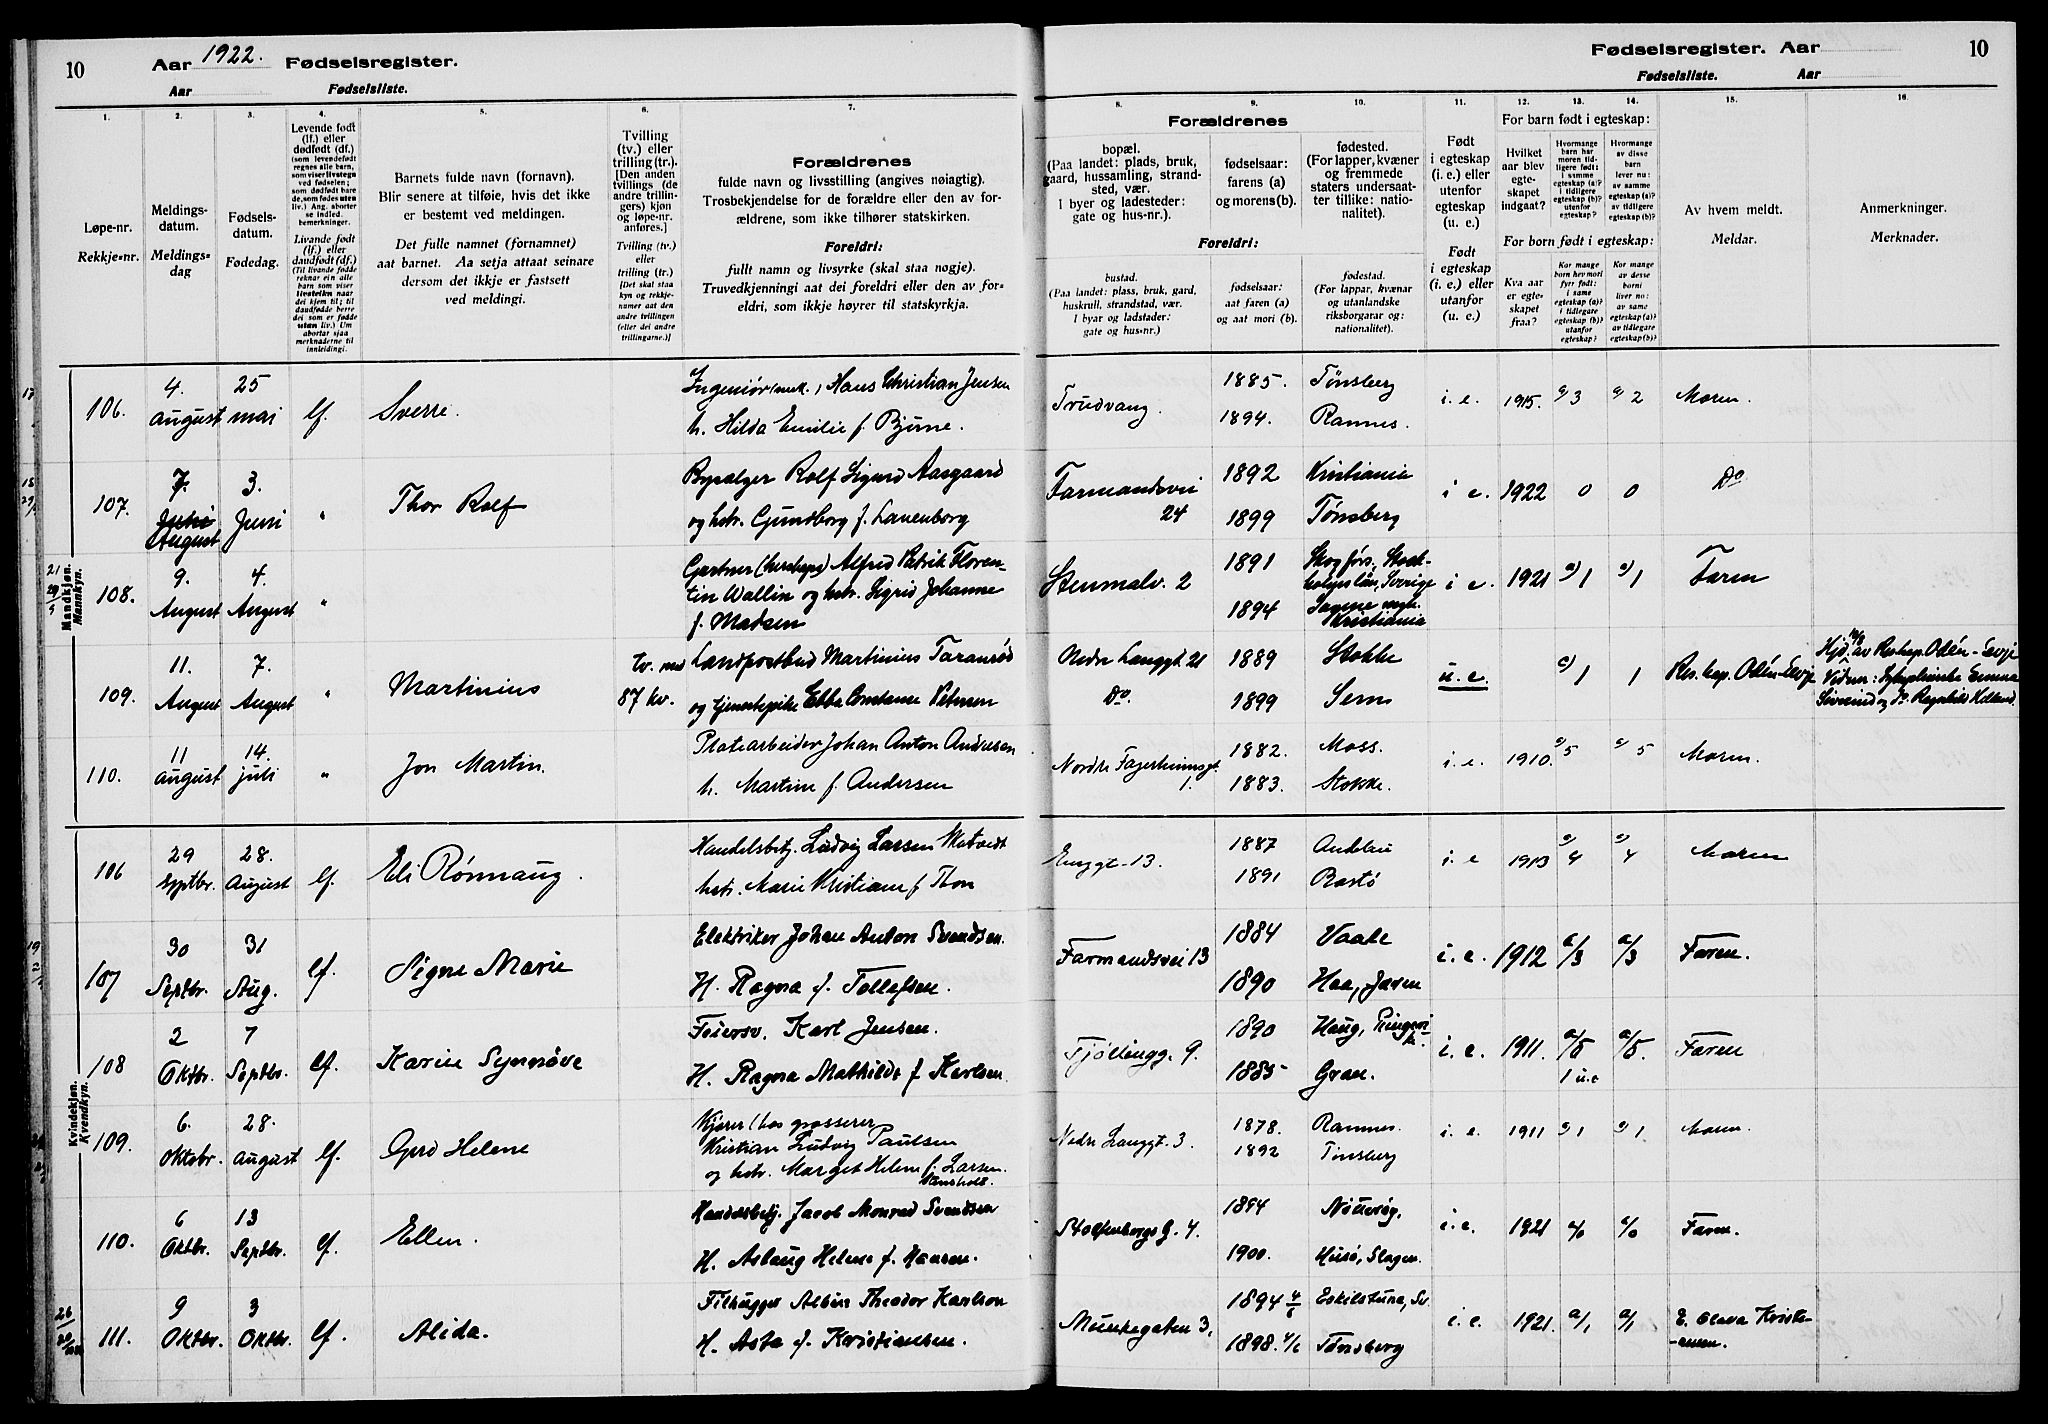 10
Aar 1922. Fødselsregister.
Aar Fødselsliste.
1.
Løpe-nr.
Rekkje-nr.
2.
Meldings-
datum.
Meldings-
dag
3.
Fødsels-
datum.
Fødedag.
4.
Levende født
(lf.) eller
dødfødt (df.)
(som levendefødt
regnes alle barn,
som viser livstegn
ved fødselen;
som dødfødt bare
de, som fødes uten
liv.) Ang. aborter
se indled.
bemerkninger.
Livande født
(lf.) eller
daudfødt (df.)
(Til livande fødde
reknar ein alle
barn som viser
livsteikn naar
dei kjem til; til
daudfødde berre
dei som er fødde
utan liv.) Um
abortar sjaa
merknaderne til
innleidingi.
5.
Barnets fulde navn (fornavn).
Blir senere at tilføie, hvis det ikke
er bestemt ved meldingen.
Det fulle namnet (fornamnet)
aat barnet. Aa setja attaat seinare
dersom det ikkje er fastsett
ved meldingi.
6.
Tvilling
(tv.) eller
trilling (tr.).
[Den anden
tvillings (de
andre trillin-
gers) kjøn
og løpe-nr.
anføres.]
Tvilling (tv.)
eller
trilling (tr.)
[Det skal staa
kyn og rekkje-
numer aat den
andre tvillingen
(eller dei andre
trillingarne.)]
7.
Forældrenes
fulde navn og livsstilling (angives nøiagtig).
Trosbekjendelse for de forældre eller den av for-
ældrene, som ikke tilhører statskirken.
Foreldri:
fullt namn og livsyrke (skal staa nøgje).
Truvedkjenningi aat dei foreldri eller den av for-
eldri, som ikkje høyrer til statskyrkja.
Fødselsregister. Aar
10
Fødselsliste. Aar
Forældrenes
8.
bopæl.
(Paa landet: plads, bruk,
gaard, hussamling, strand-
sted, vær.
I byer og ladesteder:
gate og hus-nr.).
9.
fødselsaar:
farens (a)
og morens(b).
10.
fødested.
(For lapper, kvæner
og fremmede
staters undersaat-
ter tillike: natio-
nalitet).
Foreldri:
bustad.
(Paa landet: plass, bruk, gard,
huskrull, strandstad, vær.
I byar og ladstader:
gate og hus-nr.)
fødselsaar:
aat faren (a)
og aat mori (b).
fødestad.
(For lappar, kvænar
og utanlandske
riksborgarar og:
nationalitet).
11.
Født
i egteskap
(i. e.) eller
utenfor
egteskap
(u. e.)
Født
i egteskap
(i. e.) eller
utanfor
(u. e.)
For barn født i egteskap:
12.
Hvilket
aar blev
egte-
skapet
indgaat?
13.
Hvormange
barn har
moren tid-
ligere født:
i samme
egteskap (a)?
i tidligere
egteskap (b)?
utenfor
egteskap?
14.
Hvormange
av disse
barn
lever nu:
av samme
egteskap (a)?
av tidligere
egteskap (b)?
For born født i egteskap:
Kva aar
er egte-
skapet
fraa?
Kor mange
born hev mori
fyrr født:
i same
egteskap (a)?
i tidlegare
egteskap (b)?
utanfor
egteskap?
Kor mange
av desse
borni
liver no:
av same
egteskap (a)?
av tidlegare
egteskap (b)?
15.
Av hvem meldt.
Meldar.
16.
Anmerkninger.
Merknader.
Mandkjøn.
Mannkyn.
106. 4. august 25 mai lf. Sverre.
Ingeniør Hans Christian Jensen
h. Hilda Emilie f. Bjune.
Trudvang. 1885. Tønsberg
1894. Ramnes.
i. e. 1915. a) 3 a) 2 Moren.
107. 7. Juni August 3. Juni " Thor Rolf
Bysælger Rolf Sigurd Aasgaard
og hstr. Gundborg f. Lauenborg
Farmandsvei 24 1892 Kristiania
1899 Tønsberg
i e. 1922 0 0 Do
108. 9. August 4. August "
Gartner Alfred Patrik Floren-
tin Wallin og hstr. Sigrid Johanne
f. Madsen
Stenmalv. 2 1891 Skogfors, Stock-
holmslän, Sverige
1894 Kristiania
i e. 1921 a) 1 a) 1 Faren
109. 11. August 7. August " Martinius tv. med
87 kv.
Landpostbud Martinius Taranrød
og tjenestepike Ebba Constanse Petersen
Nedre Langgt. 21 1889 Stokke
Do. 1899 Sem
u. e. a) 1 1 Res. kap. Odén-Eevje
110. 11 august 14. juli " Jon Martin.
Platearbeider Johan Anton Andersen
h. Martine f. Andersen
Nordre Fagerheimsgt. 1. 1882. Moss.
1883. Stokke.
i. e. 1910. a) 5 a) 5 Moren.
Kvindekjøn.
Kvendkyn.
106 29 Septbr. 28. August lf. Eli Rønnaug.
Handelsbetj. Ludvig Larsen
hstr. Marie Kristiane f. Thon
Enggt. 13. 1887 Andebu
1891 Bastø
i. e 1913 a) 4 a) 4 Moren
107 30 Septbr. 31 Aug. lf. Signe Marie
Elektriker Johan Anton Svendsen.
H. Ragna f. Tollefsen.
Farmandsvei 13 1884 Vaale
1890 Haa, Jæren
i. e. 1912 a/3 a/3 Faren.
108 2 Oktbr. 7 Septbr. lf. Karin Synnøve
Feiersv. Karl Jensen.
H. Ragna Mathilde f Karlsen.
Fjøllingg. 9. 1890 Haug,
1885 Gran.
i. e. 1911. a/5 1 u.e a/5. Faren
109. 6. oktobr. 28. august lf. Gerd Helene
Kjører hos grosserer
Kristian Ludvig Paulsen
og hstr. Margit Helene f. Larsen
Nedre Langgt. 3. 1878. Ramnes.
1892 Tønsberg
i. e. 1911 a) 1 a) 1. Moren.
110. 6 Oktbr. 13 Septbr. lf. Ellen.
Handelsbetj. Jacob Monrad Svendsen
H. Aslaug Helene f. Hansen.
Stoltenbergs g. 4. 1894 Nøtterøy.
1900. Husø, Slagen.
i. e. 1921 a/0 a/0 Faren.
111. 9 Oktbr. 3 Oktbr. lf. Alida.
Filhugger Albin Theodor Karlson
H. Asta f. Kristiansen.
Munkegaten 3. 1894 4/6 Eskilstuna, Sv.
1898. 4/6 Tønsberg
i. e. 1921. a/1 a/1 E. Olava Kristi-
-ansen.